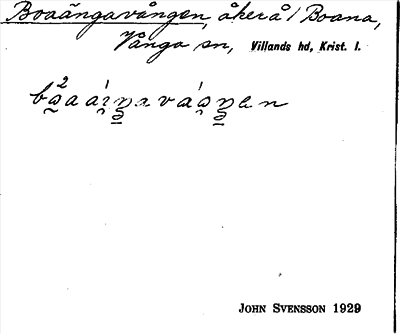 Boaängavången, åkerå / Boana,
Vånga sn, Villands hd, Krist. l.
JOHN SVENSSON 1929